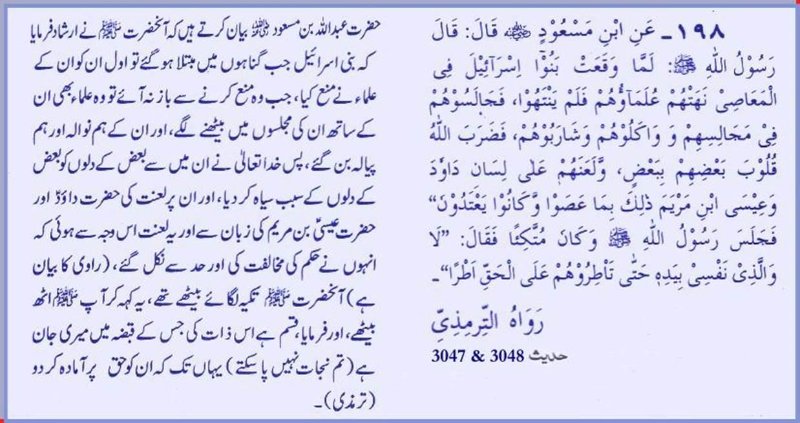 ۱۹۸ـ عَنِ ابْنِ مَسْعُوْدٍ ﷺ قَالَ: قَالَ
رَسُوْلُ اللهِ ﷺ: لَمَّا وَقَعَتْ بَنُوْا اِسْرَآئِیْلَ فِی
الْمَعَاصِیْ نَهَتْهُمْ عُلَمَآؤُهُمْ فَلَمْ یَنْتَهُوْا، فَجَالَسُوْهُمْ
فِیْ مَجَالِسِهِمْ وَ وَاكَلُوْهُمْ وَشَارَبُوْهُمْ، فَضَرَبَ اللهُ
قُلُوْبَ بَعْضِهِمْ بِبَعْضٍ، وَلَعَنَهُمْ عَلٰی لِسَانِ دَاوٗدَ
وَعِیْسَی ابْنِ مَرْیَمَ ذٰلِكَ بِمَا عَصَوْا وَّكَانُوْا یَعْتَدُوْنَ“
فَجَلَسَ رَسُوْلُ اللهِ ﷺ وَكَانَ مُتَّكِئًا فَقَالَ: ”لَا
وَالَّذِیْ نَفْسِیْ بِیَدِهٖ حَتّٰی تَأْطِرُوْهُمْ عَلَی الْحَقِّ اَطْرًا“ـ
رَوَاهُ التِّرْمِذِیِّ
حدیث 3048 & 3047
حضرت عبداللہ بن مسعود بیان کرتے ہیں کہ آنحضرت ﷺ نے ارشاد فرمایا
کہ بنی اسرائیل جب گناہوں میں مبتلا ہو گئے تو اول ان کو ان کے
علماء نے منع کیا، جب وہ منع کرنے سے باز نہ آئے تو وہ علماء بھی ان
کے ساتھ ان کی مجلسوں میں بیٹھنے لگے، اور ان کے ہم نوالہ اور ہم
پیالہ بن گئے، پس خدا تعالیٰ نے ان میں سے بعض کے دلوں کو بعض
کے دلوں کے سبب سیاہ کر دیا، اور ان پر لعنت کی حضرت داؤدؑ اور
حضرت عیسیٰؑ بن مریم کی زبان سے اور یہ لعنت اس وجہ سے ہوئی کہ
انہوں نے حکم کی مخالفت کی اور حد سے نکل گئے، (راوی کا بیان
ہے) آنحضرت ﷺ تکیہ لگائے بیٹھے تھے، یہ کہہ کر آپ ﷺ اٹھ
بیٹھے، اور فرمایا، قسم ہے اس ذات کی جس کے قبضہ میں میری جان
ہے (تم نجات نہیں پا سکتے) یہاں تک کہ ان کو حق پر آمادہ کر دو
(ترمذی)۔